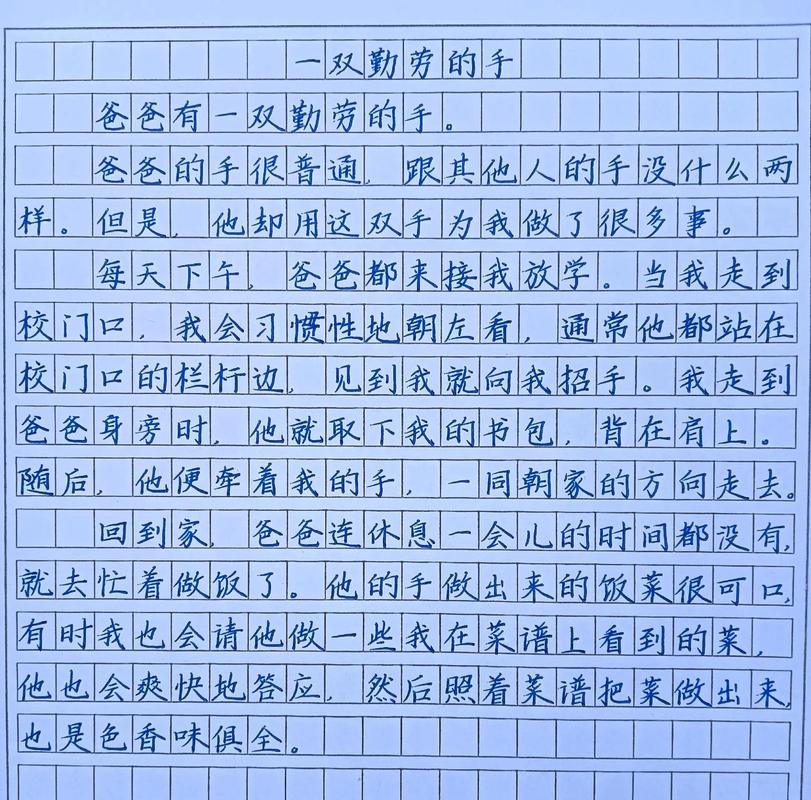 一双勤劳的手
爸爸有一双勤劳的手。
爸爸的手很普通,跟其他人的手没什么两
样。但是,他却用这双手为我做了很多事。
每天下午,爸爸都来接我放学。当我走到
校门口,我会习惯性地朝左看,通常他都站在
校门口的栏杆边,见到我就向我招手。我走到
爸爸身旁时,他就取下我的书包,背在肩上。
随后,他便牵着我的手,一同朝家的方向走去。
回到家,爸爸连休息一会儿的时间都没有,
就去忙着做饭了。他的手做出来的饭菜很可口,
有时我也会请他做一些我在菜谱上看到的菜,
他也会爽快地答应,然后照着菜谱把菜做出来,
也是色香味俱全。